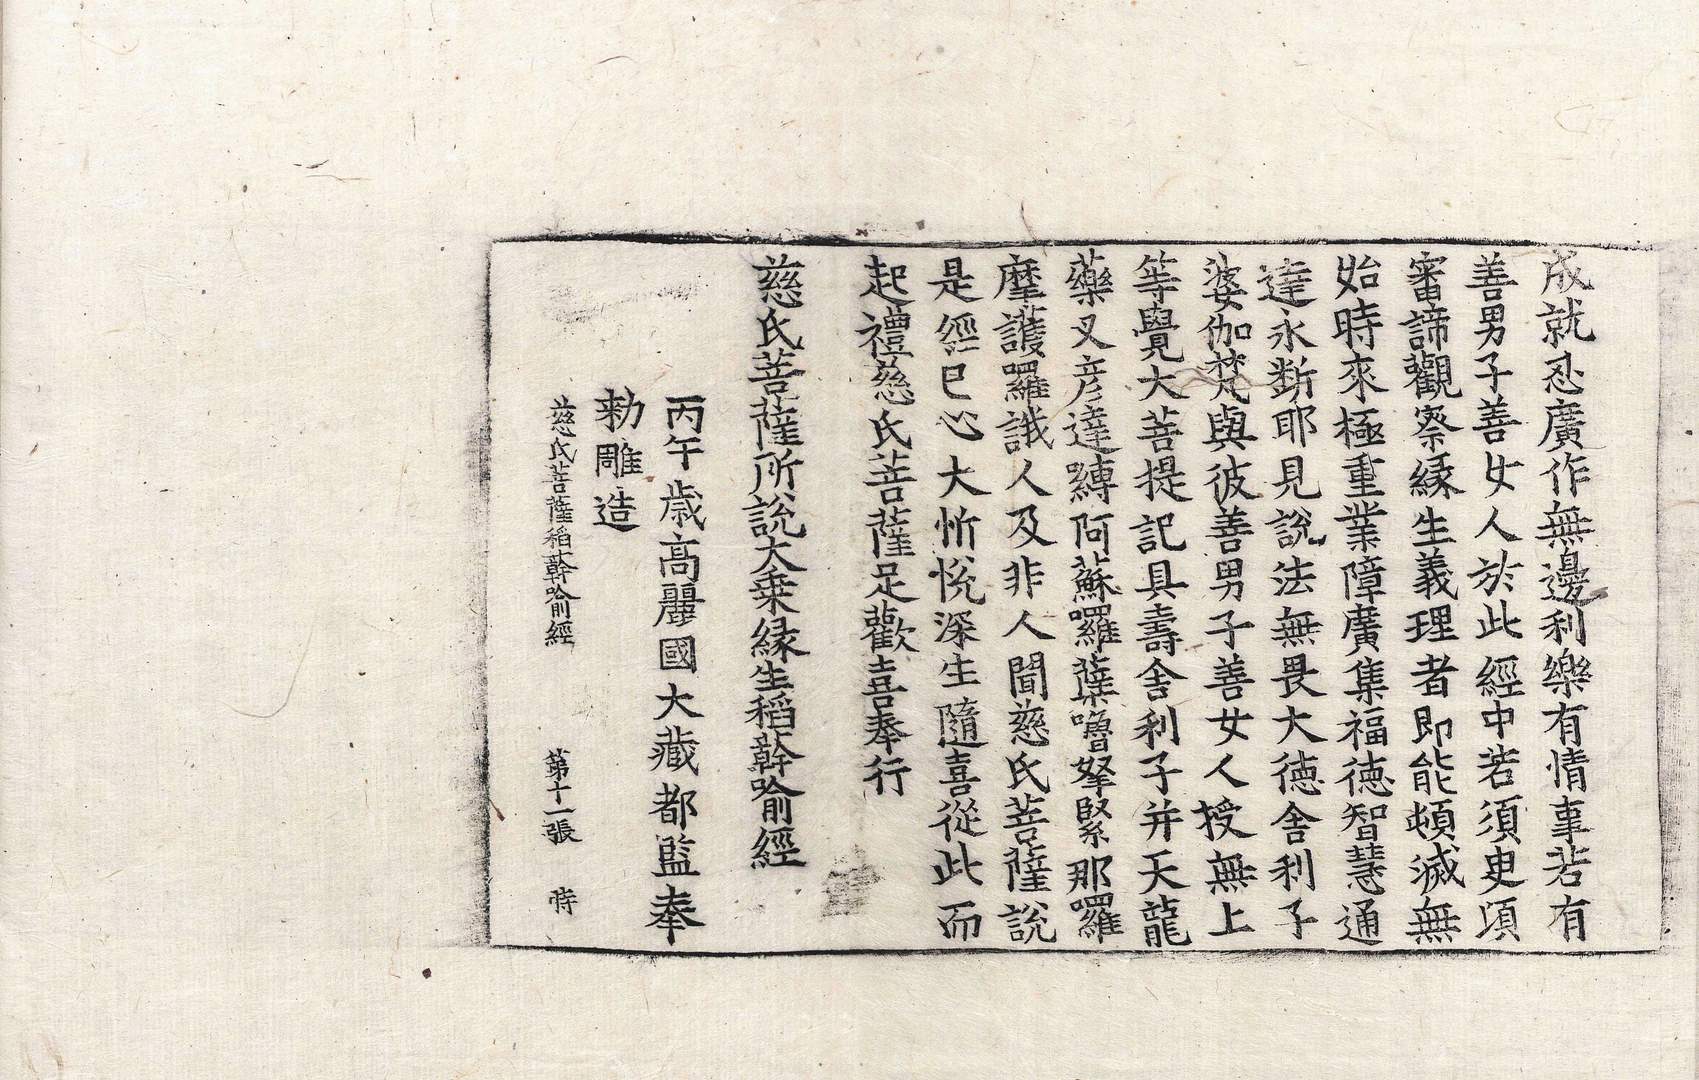 成就忍廣作無邊利樂有情事若有
善男子善女人於此經中若須臾頃
審諦觀察緣生義理者即能頓滅無
始時來極重業障廣集福德智慧通
達永斷耶見說法無畏大德舍利子
婆伽梵與彼善男子善女人授無上
等覺大菩提記具壽舍利子并天龍
藥叉彦達嚩阿蘇囉蘖嚕拏緊那囉
摩護囉誐人及非人聞慈氏菩薩說
是經已心大忻悅深生隨喜從此而
起禮慈氏菩薩足歡喜奉行
慈氏菩薩所說大乘緣生稻𦼮喻經
丙午歲高麗國大藏都監奉
勅雕造
慈氏菩薩稻𦼮喻經 第十一張 恃